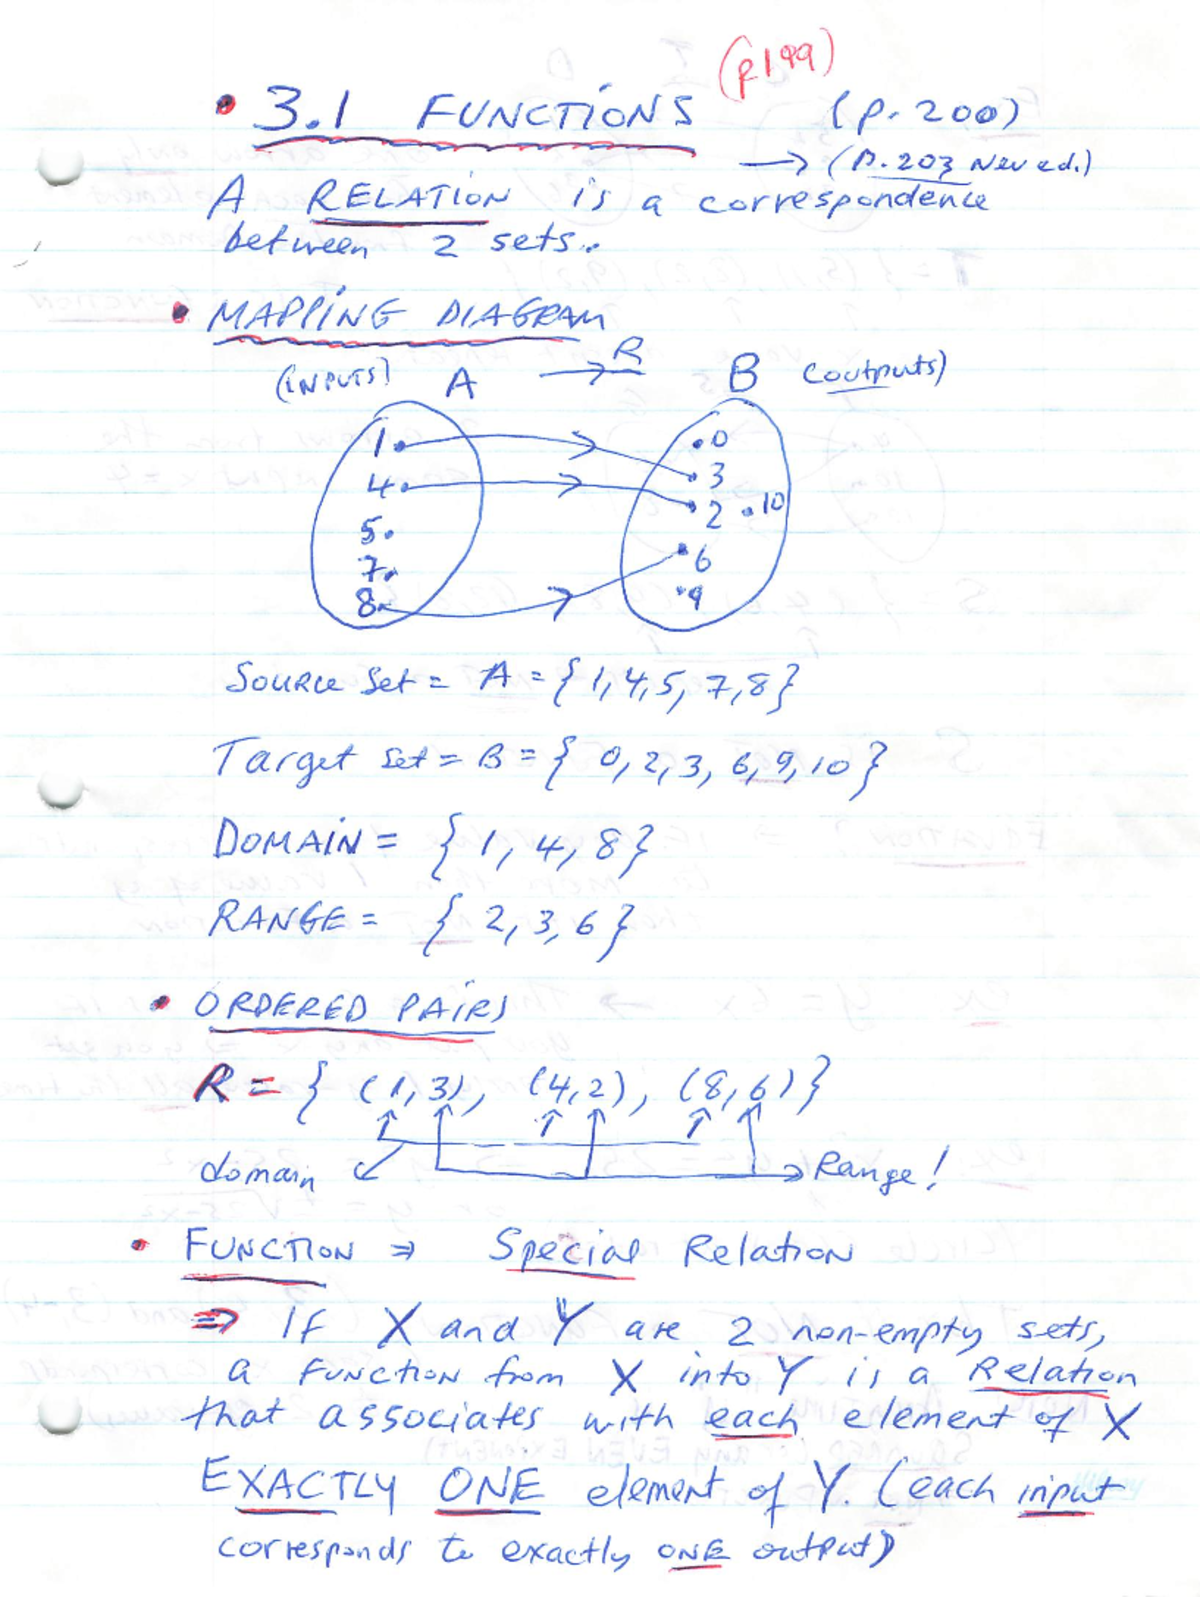 (p199)
• 3.1 FUNCTIONS (p. 200)
→ (p. 203 New ed.)
A RELATION is a correspondence
between 2 sets.
• MAPPING DIAGRAM
(INPUTS) A → R B (outputs)
1 0
4 3
2 10
5
7 6
8 9
Source Set = A = { 1, 4, 5, 7, 8 }
Target Set = B = { 0, 2, 3, 6, 9, 10 }
DOMAIN = { 1, 4, 8 }
RANGE = { 2, 3, 6 }
• ORDERED PAIRS
R = { (1, 3), (4, 2), (8, 6) }
domain Range!
• FUNCTION ⇒ Special Relation
⇒ If X and Y are 2 non-empty sets,
a FUNCTION from X into Y is a Relation
that associates with each element of X
EXACTLY ONE element of Y. (each input
corresponds to exactly ONE output)